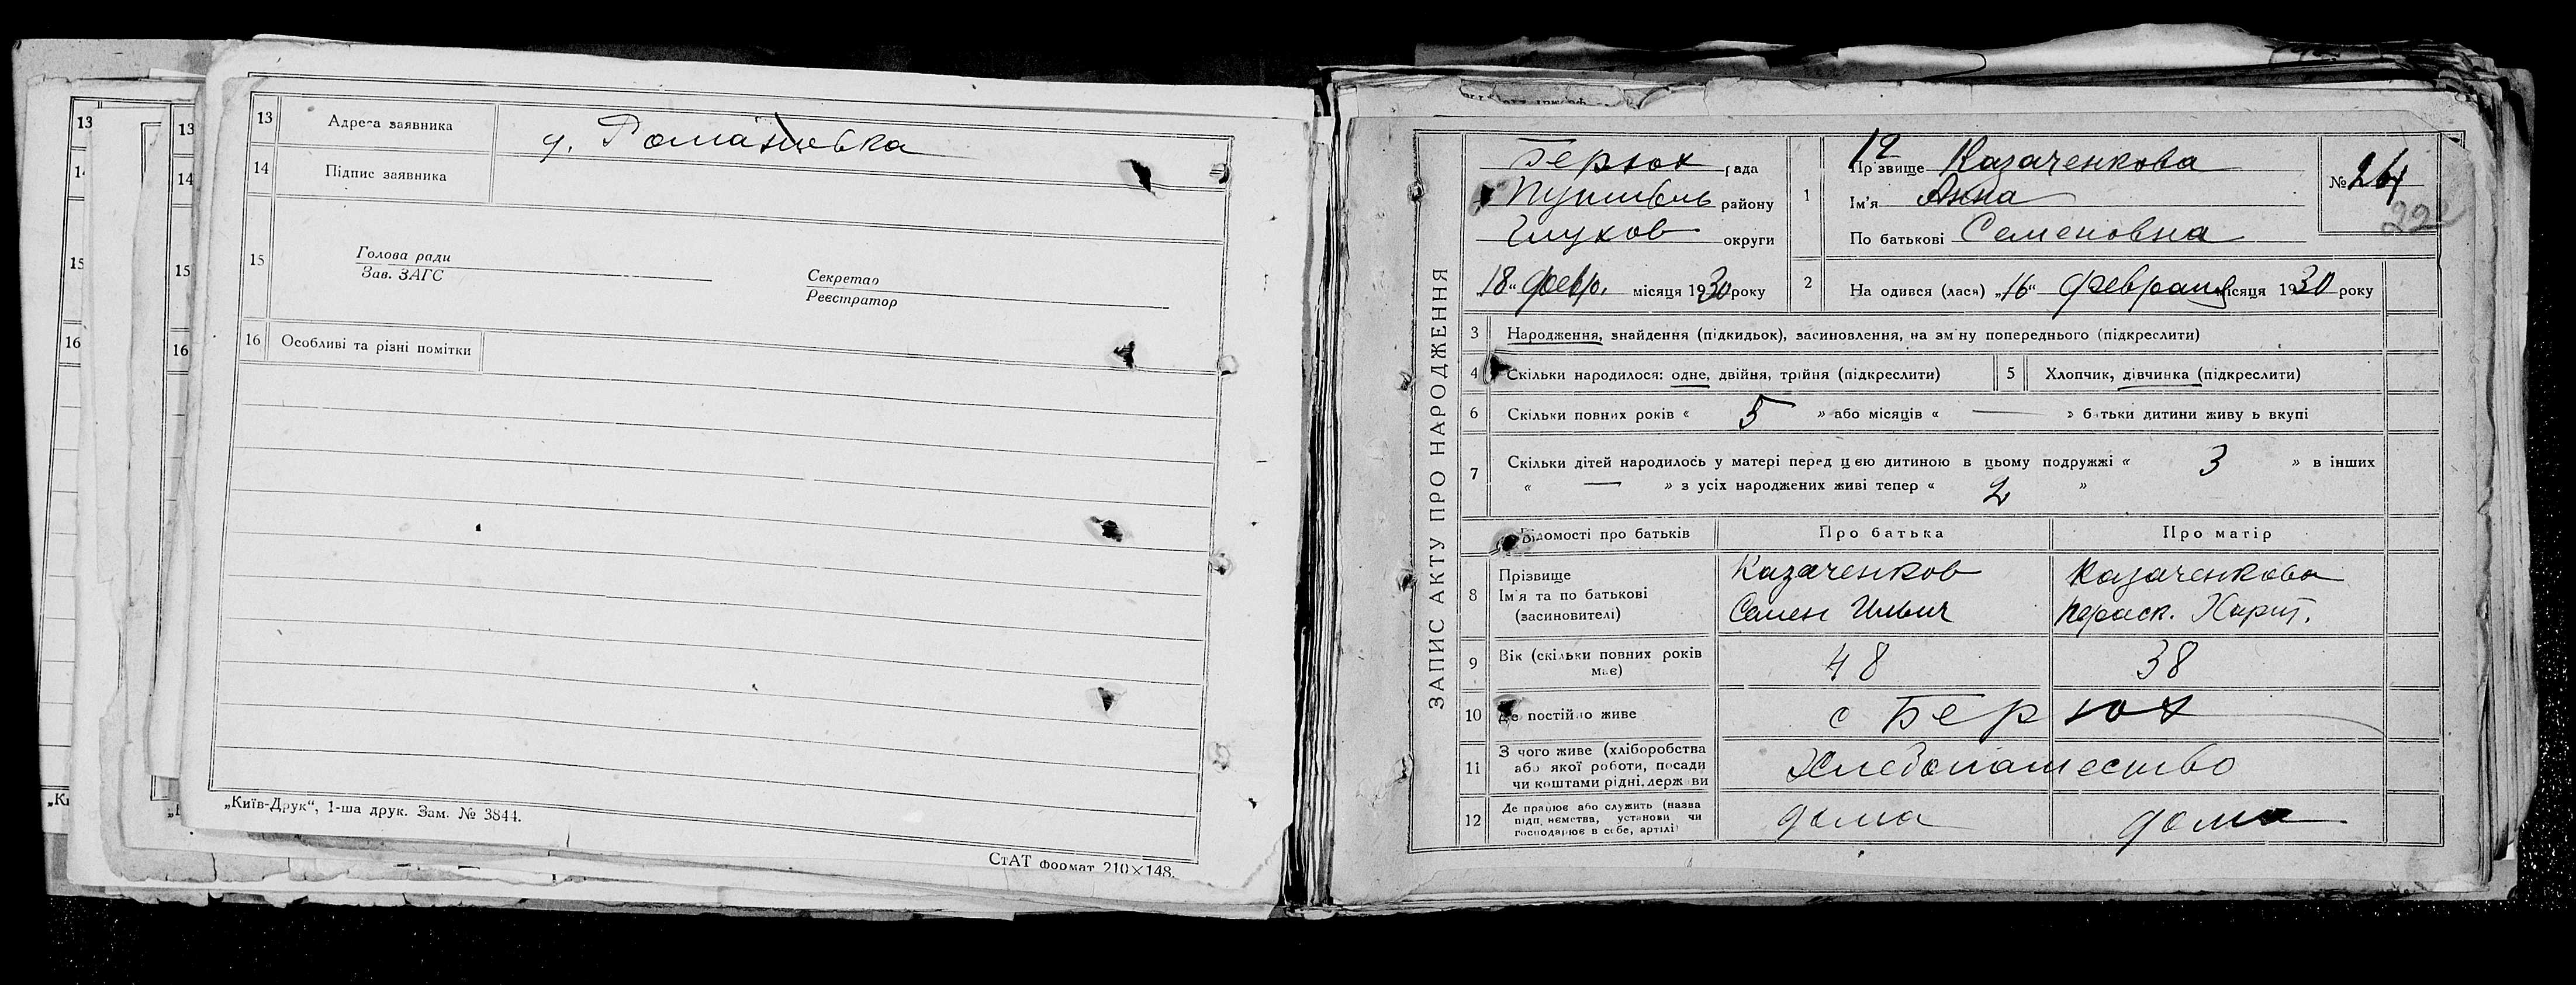 13 Адреса заявника д. Романовка
14 Підпис заявника
15 Голова ради
Зав. ЗАГС
Секретар
Реєстратор
16 Особливі та різні помітки
„Київ-Друк“, 1-ша друк. Зам. № 3844.
СтАТ формат 210×148.
ЗАПИС АКТУ ПРО НАРОДЖЕННЯ
Берюх рада
Путивль району
Глухов округи
„18“ февр. місяця 1930 року
12
1 Прізвище Казаченкова
Ім'я Анна
По батькові Семеновна
№ 24
222
2 Народився (лася) „16“ февраля місяця 1930 року
3 Народження, знайдення (підкидьок), засиновлення, на зміну попереднього (підкреслити)
4 Скільки народилося: одне, двійня, трійня (підкреслити)
5 Хлопчик, дівчинка (підкреслити)
6 Скільки повних років « 5 » або місяців « — » батьки дитини живуть вкупі
7 Скільки дітей народилось у матері перед цією дитиною в цьому подружжі « 3 » в інших
« — » з усіх народжених живі тепер « 2 »
Відомості про батьків Про батька Про матір
8 Прізвище Ім'я та по батькові (засиновителі)
Казаченков
Семен Ильич
Казаченкова
Параск. Харит.
9 Вік (скільки повних років має) 48 38
10 Де постійно живе с Берюх
11 З чого живе (хліборобства
або якої роботи, посади
чи коштами рідні, держави
Хлебопашество
12 Де працює або служить (назва
підприємства, установи чи
господарює в себе, артілі)
дома дома